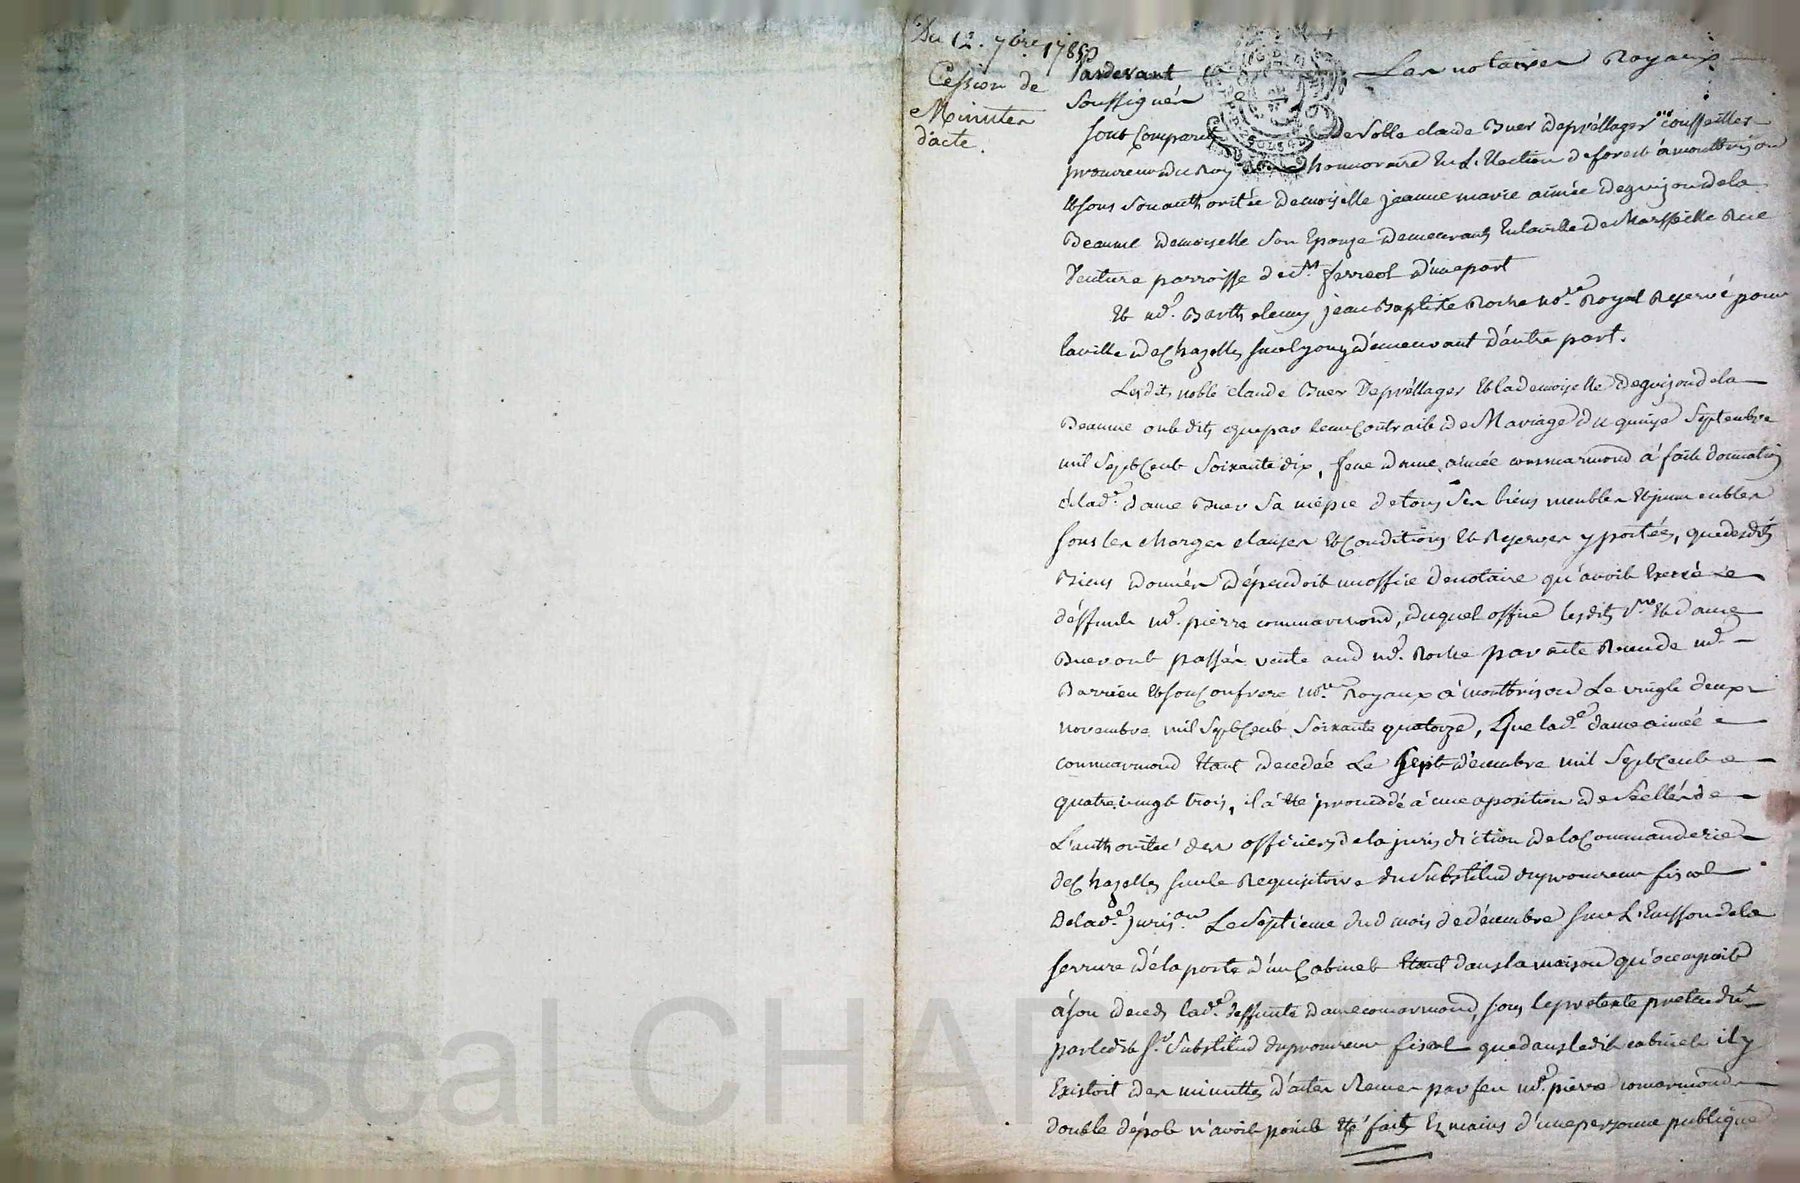 Du 12. 7bre 1785
Cession de
Minuttes
d'acte.
Pardevant Les notaires Royaux
soussignés
sont comparus noble claude Buer Deprèllages conseiller
procureur du Roy honnoraire En L'Election de forest à montbrison
Et sous son authoritée demoiselle jeanne marie aimée deguison dela
Beaume demoiselle son Epouze demeurants En la ville de Marseille Rüe
Venture parroisse de st ferreol d'une part
Et Md. Barthelemy jean Baptiste Roche nore Royal Reservé pour
la ville de Chazelles sur lyon y demeurant d'autre part.
Lesdits noble claude Buer Deprèllages Et la demoiselle deguison dela
Beaume ont dits que par leur Contrait de Mariage du quinze septembre
mil sept Cent soixante dix, feüe dame aimée commarmond à fait donnation
à lade. dame Buer sa niépce de tous ses biens meubles Et immeubles
sous les charges clauses Et Conditions Et Reserves y portées, que desdits
Biens donnés dépendoit un office de notaire qu'avoit Exercé Le
déffunt Md. pierre commarmond, duquel office lesdits srs Et dame
Buer ont passés vente aud Md. Roche par acte Reçu de Md.
Barrieu Et son Confrere nores Royaux à montbrison Le vingt deux
novembre mil sept Cent soixante quatorze, Que lade dame aimée
commarmond Etant decedée Le sept décembre mil sept Cent
quatre vingt trois, il à Eté procedé à une aposition de scellés de
L'authoritée des officiers de la jurisdiction de la Commanderie
de Chazelles sur le Requisitoire du substitud du procureur fiscal
de lade. jurison. Le septieme dud mois de décembre sur L'Ecusson de la
serrure de la porte d'un Cabinet Etant dans la maison qu'occupoit
à son decès lade deffunte dame comarmond, sous le pretexte pretendu
par ledit sr substitud du procureur fiscal que dans ledit cabinet il y
Existoit des minuttes d'actes Reçues par feu Md. pierre comarmond
dont le dépot n'avoit point Eté fait Es mains d'une personne publique
Pascal CHAREYRON